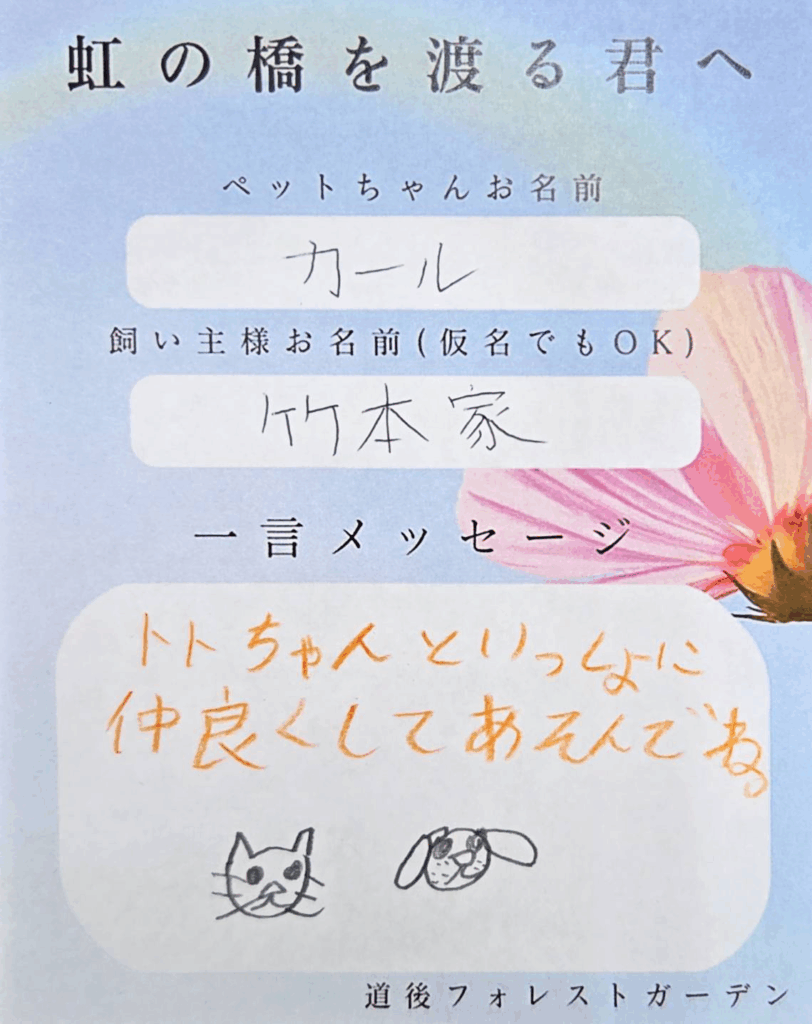 虹の橋を渡る君へ
ペットちゃんお名前
カール
飼い主様お名前(仮名でもOK)
竹本家
一言メッセージ
トトちゃんといっしょに
仲良くしてあそんでね
道後フォレストガーデン